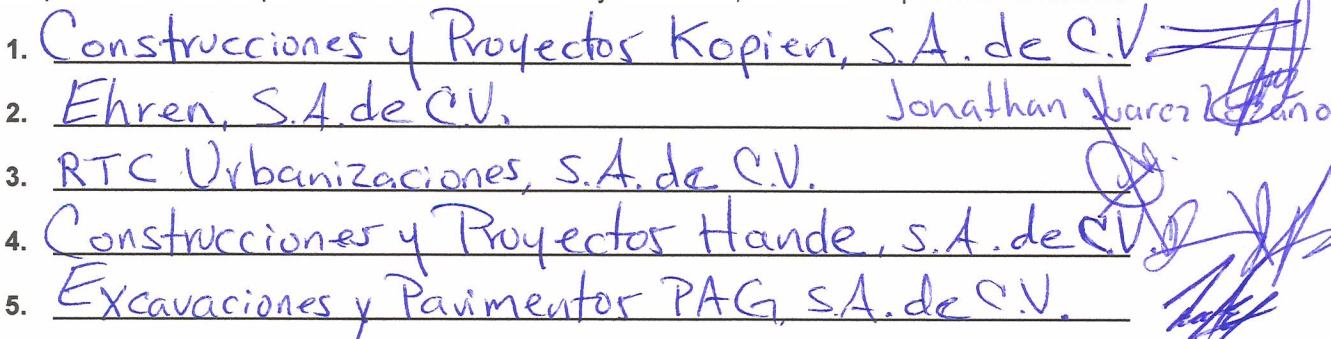 1. Construcciones y Proyectos Kopien, S.A. de C.V.
2. Ehren, S.A. de C.V. Jonathan Juarez Lozano
3. RTC Urbanizaciones, S.A. de C.V.
4. Construcciones y Proyectos Hande, S.A. de C.V.
5. Excavaciones y Pavimentos PAG, S.A. de C.V.